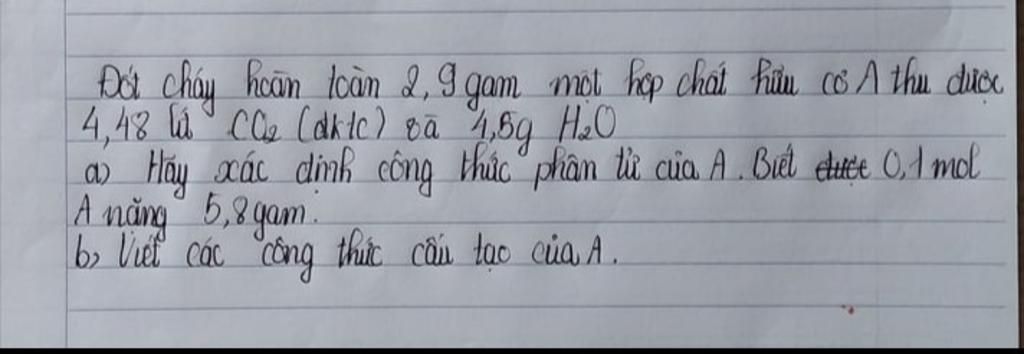 Đốt cháy hoàn toàn 2,9 gam một hợp chất hữu cơ A thu được
4,48 lít CO₂ (đktc) và 4,5g H₂O
a) Hãy xác định công thức phân tử của A. Biết được 0,1 mol
A nặng 5,8 gam.
b) Viết các công thức cấu tạo của A.